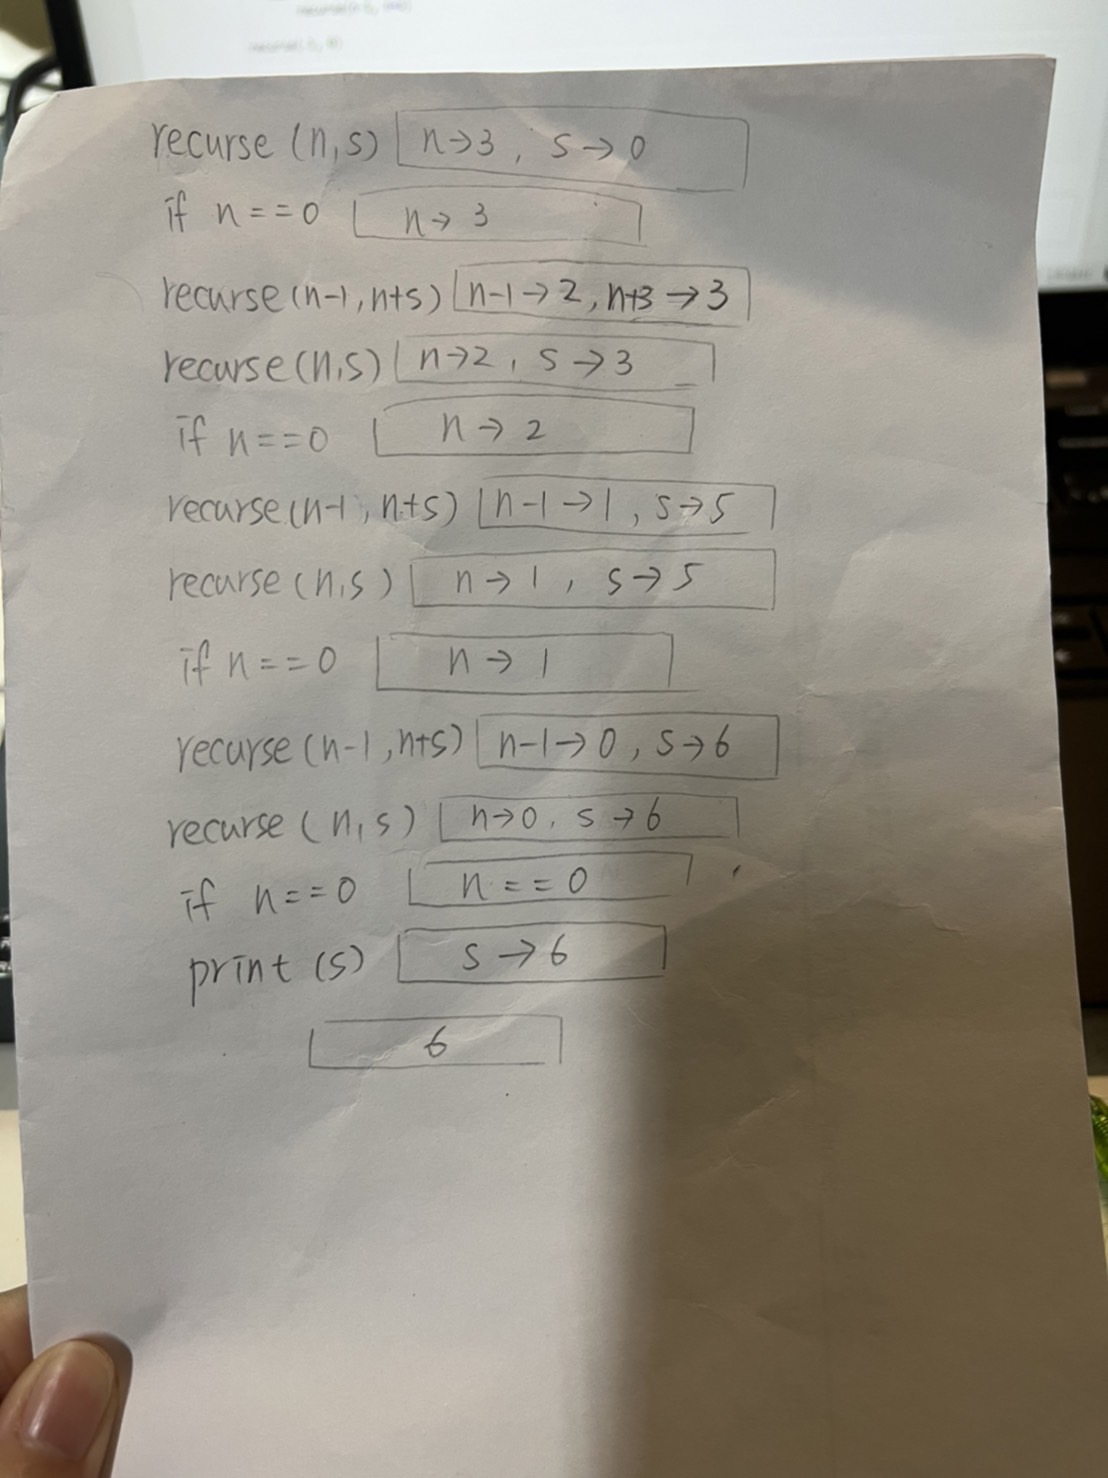 recurse (n,s) n→3, s→0
if n==0 n→3
recurse(n-1,n+s) n-1→2,n+3→3
recurse(n,s) n→2, s→3
if n==0 n→2
recurse(n-1,n+s) n-1→1, s→5
recurse(n,s) n→1, s→5
if n==0 n→1
recurse(n-1,n+s) n-1→0, s→6
recurse(n,s) n→0, s→6
if n==0 n==0
print(s) s→6
6